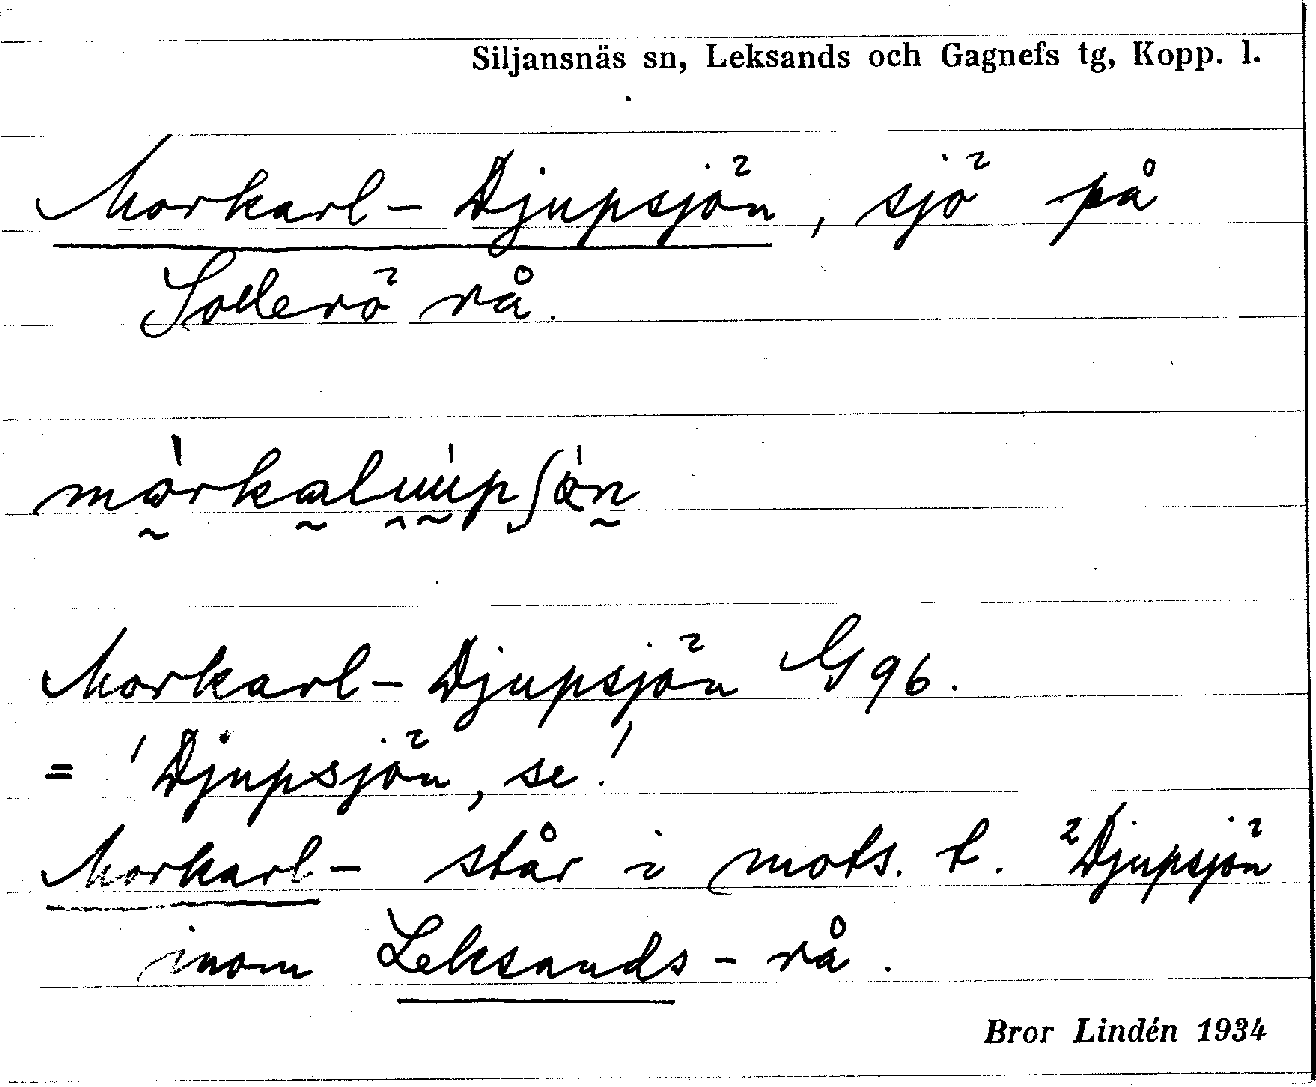 Siljansnäs sn, Leksands och Gagnefs tg, Kopp. l.
Morkarl-Djupsjön, sjö på
Sollerö rå.
Morkarl-Djupsjön G96.
= 'Djupsjön, se!
Morkarl- står i mots. t. ²Djupsjön
inom Leksands-rå.
Bror Lindén 1934